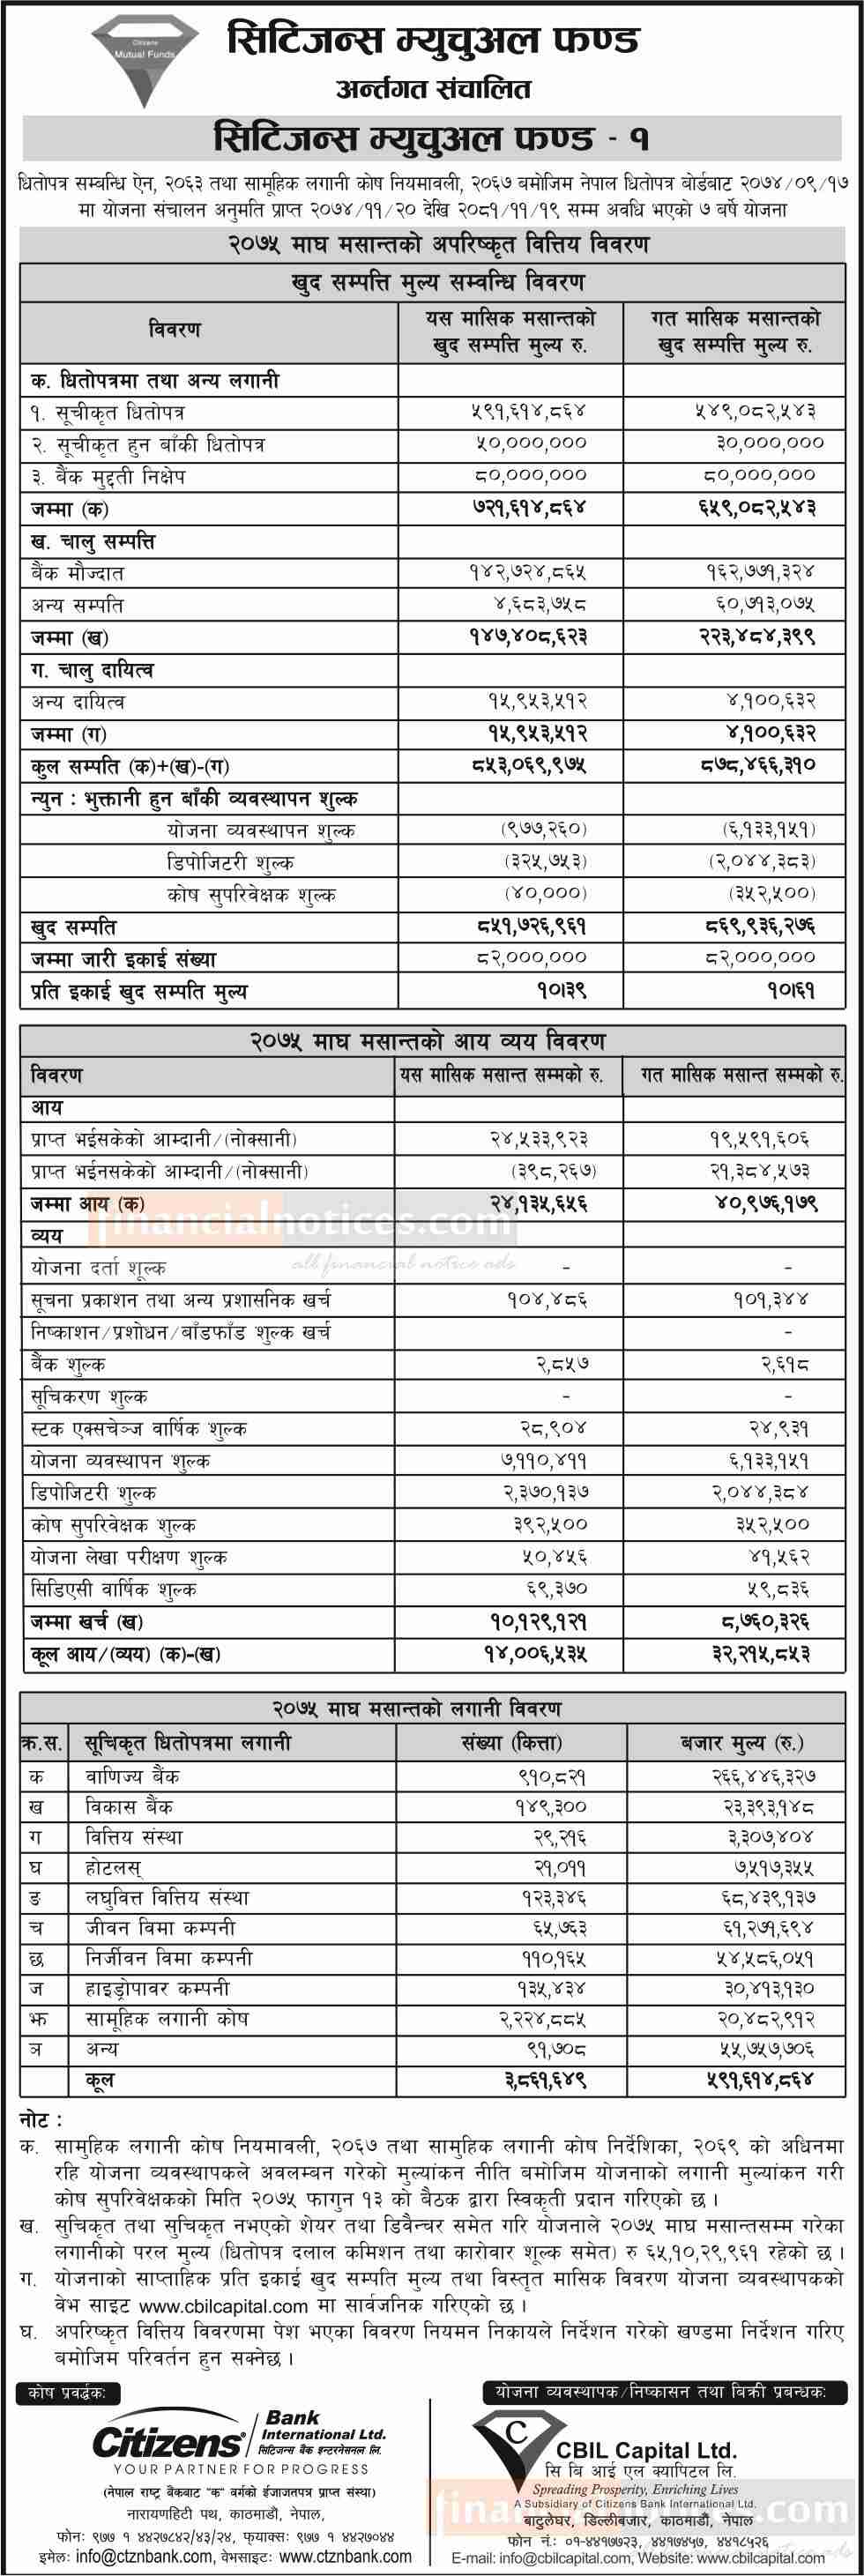 Citizens
Mutual Funds
सिटिजन्स म्युचुअल फण्ड
अर्न्तगत संचालित
सिटिजन्स म्युचुअल फण्ड - १
धितोपत्र सम्बन्धि ऐन, २०६३ तथा सामूहिक लगानी कोष नियमावली, २०६७ बमोजिम नेपाल धितोपत्र बोर्डबाट २०७४/०९/१७
मा योजना संचालन अनुमति प्राप्त २०७४/११/२० देखि २०८१/११/१९ सम्म अवधि भएको ७ बर्षे योजना
२०७५ माघ मसान्तको अपरिष्कृत वित्तिय विवरण
खुद सम्पत्ति मुल्य सम्वन्धि विवरण
विवरण यस मासिक मसान्तको खुद सम्पत्ति मुल्य रु. गत मासिक मसान्तको खुद सम्पत्ति मुल्य रु.
क. धितोपत्रमा तथा अन्य लगानी
१. सूचीकृत धितोपत्र ५९१,६१४,८६४ ५४९,०८२,५४३
२. सूचीकृत हुन बाँकी धितोपत्र ५०,०००,००० ३०,०००,०००
३. बैंक मुद्दती निक्षेप ८०,०००,००० ८०,०००,०००
जम्मा (क) ७२१,६१४,८६४ ६५९,०८२,५४३
ख. चालु सम्पत्ति
बैंक मौज्दात १४२,७२४,८६५ १६२,७७१,३२४
अन्य सम्पति ४,६८३,७५८ ६०,७१३,०७५
जम्मा (ख) १४७,४०८,६२३ २२३,४८४,३९९
ग. चालु दायित्व
अन्य दायित्व १५,९५३,५१२ ४,१००,६३२
जम्मा (ग) १५,९५३,५१२ ४,१००,६३२
कुल सम्पति (क)+(ख)-(ग) ८५३,०६९,९७५ ८७८,४६६,३१०
न्युन : भुक्तानी हुन बाँकी व्यवस्थापन शुल्क
योजना व्यवस्थापन शुल्क (९७७,२६०) (६,१३३,१५१)
डिपोजिटरी शुल्क (३२५,७५३) (२,०४४,३८३)
कोष सुपरिवेक्षक शुल्क (४०,०००) (३५२,५००)
खुद सम्पति ८५१,७२६,९६१ ८६९,९३६,२७६
जम्मा जारी इकाई संख्या ८२,०००,००० ८२,०००,०००
प्रति इकाई खुद सम्पति मुल्य १०।३९ १०।६१
२०७५ माघ मसान्तको आय व्यय विवरण
विवरण यस मासिक मसान्त सम्मको रु. गत मासिक मसान्त सम्मको रु.
आय
प्राप्त भईसकेको आम्दानी/(नोक्सानी) २४,५३३,९२३ १९,५९१,६०६
प्राप्त भईनसकेको आम्दानी/(नोक्सानी) (३९८,२६७) २१,३८४,५७३
जम्मा आय (क) २४,१३५,६५६ ४०,९७६,१७९
financialnotices.com
व्यय
all financial notice ads
योजना दर्ता शूल्क - -
सूचना प्रकाशन तथा अन्य प्रशासनिक खर्च १०४,४८६ १०१,३४४
निष्काशन/प्रशोधन/बाँडफाँड शुल्क खर्च -
बैंक शुल्क २,८५७ २,६१८
सूचिकरण शुल्क - -
स्टक एक्सचेञ्ज वार्षिक शुल्क २८,९०४ २४,९३१
योजना व्यवस्थापन शुल्क ७,११०,४११ ६,१३३,१५१
डिपोजिटरी शुल्क २,३७०,१३७ २,०४४,३८४
कोष सुपरिवेक्षक शुल्क ३९२,५०० ३५२,५००
योजना लेखा परीक्षण शुल्क ५०,४५६ ४१,५६२
सिडिएसी वार्षिक शुल्क ६९,३७० ५९,८३६
जम्मा खर्च (ख) १०,१२९,१२१ ८,७६०,३२६
कूल आय/(व्यय) (क)-(ख) १४,००६,५३५ ३२,२१५,८५३
२०७५ माघ मसान्तको लगानी विवरण
क्र.स. सूचिकृत धितोपत्रमा लगानी संख्या (कित्ता) बजार मुल्य (रु.)
क वाणिज्य बैंक ९१०,८२१ २६६,४४६,३२७
ख विकास बैंक १४९,३०० २३,३९३,१४८
ग वित्तिय संस्था २९,२१६ ३,३०७,४०४
घ होटलस् २१,०११ ७,५१७,३५५
ङ लघुवित्त वित्तिय संस्था १२३,३४६ ६८,४३९,१३७
च जीवन विमा कम्पनी ६५,७६३ ६१,२७१,६९४
छ निर्जीवन विमा कम्पनी ११०,१६५ ५४,५८६,०५१
ज हाइड्रोपावर कम्पनी १३५,४३४ ३०,४१३,१३०
झ सामूहिक लगानी कोष २,२२४,८८५ २०,४८२,९१२
ञ अन्य ९१,७०८ ५५,७५७,७०६
कूल ३,८६१,६४९ ५९१,६१४,८६४
नोट :
क. सामुहिक लगानी कोष नियमावली, २०६७ तथा सामुहिक लगानी कोष निर्देशिका, २०६९ को अधिनमा
रहि योजना व्यवस्थापकले अवलम्बन गरेको मुल्यांकन नीति बमोजिम योजनाको लगानी मुल्यांकन गरी
कोष सुपरिवेक्षकको मिति २०७५ फागुन १३ को बैठक द्वारा स्विकृती प्रदान गरिएको छ ।
ख. सुचिकृत तथा सुचिकृत नभएको शेयर तथा डिवैन्चर समेत गरि योजनाले २०७५ माघ मसान्तसम्म गरेका
लगानीको परल मुल्य (धितोपत्र दलाल कमिशन तथा कारोवार शूल्क समेत) रु ६५,१०,२९,९६१ रहेको छ ।
ग. योजनाको साप्ताहिक प्रति इकाई खुद सम्पति मुल्य तथा विस्तृत मासिक विवरण योजना व्यवस्थापकको
वेभ साइट www.cbilcapital.com मा सार्वजनिक गरिएको छ ।
घ. अपरिष्कृत वित्तिय विवरणमा पेश भएका विवरण नियमन निकायले निर्देशन गरेको खण्डमा निर्देशन गरिए
बमोजिम परिवर्तन हुन सक्नेछ ।
कोष प्रवर्द्धकः
Citizens Bank International Ltd.
सिटिजन्स बैंक इन्टरनेसनल लि.
YOUR PARTNER FOR PROGRESS
(नेपाल राष्ट्र बैंकबाट "क" वर्गको ईजाजतपत्र प्राप्त संस्था)
नारायणहिटी पथ, काठमाडौं, नेपाल,
फोनः ९७७ १ ४४२७८४२/४३/२४, फ्याक्सः ९७७ १ ४४२७०४४
इमेलः info@ctznbank.com, वेभसाइटः www.ctznbank.com
योजना व्यवस्थापक/निष्कासन तथा बिक्री प्रबन्धकः
C
CBIL Capital Ltd.
सि बि आई एल क्यापिटल लि.
Spreading Prosperity, Enriching Lives
A Subsidiary of Citizens Bank International Ltd.
financialnotices.com
बाटुलेघर, डिल्लीबजार, काठमाडौं, नेपाल
फोन नं.: ०१-४४१७७२३, ४४१७४५७, ४४१८५२६
E-mail: info@cbilcapital.com, Website: www.cbilcapital.com